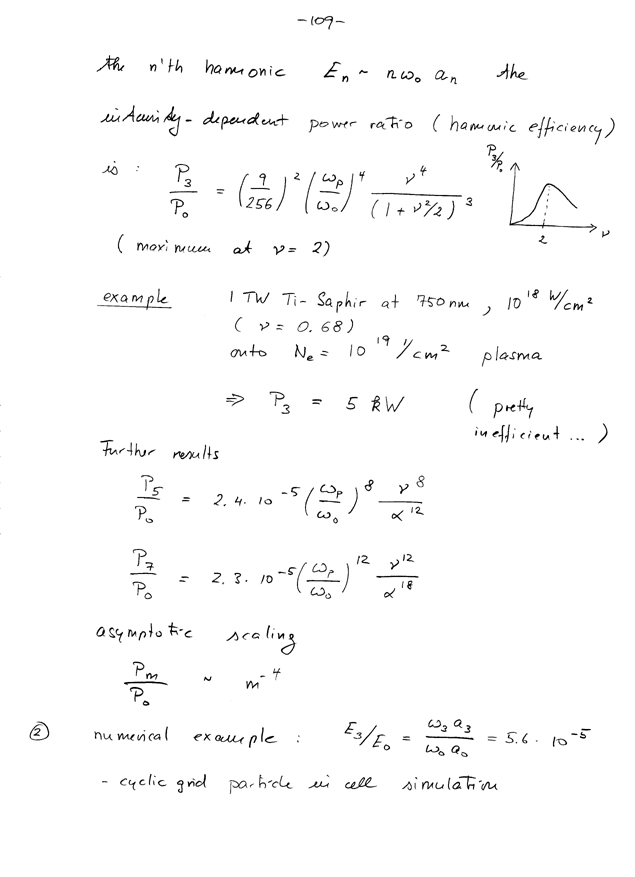 -109-
the n'th harmonic Eₙ ~ nω₀ aₙ the
intensity-dependent power ratio (harmonic efficiency)
is : P₃/P₀ = (9/256)² (ωₚ/ω₀)⁴ ν⁴/(1 + ν²/2)³
P₃/P₀
2
ν
(maximum at ν = 2)
example 1 TW Ti-Saphir at 750 nm, 10¹⁸ W/cm²
(ν = 0.68)
onto Nₑ = 10¹⁹ 1/cm² plasma
⇒ P₃ = 5 kW (pretty
inefficient ...)
Further results
P₅/P₀ = 2.4·10⁻⁵ (ωₚ/ω₀)⁸ ν⁸/α¹²
P₇/P₀ = 2.3·10⁻⁵ (ωₚ/ω₀)¹² ν¹²/α¹⁸
asymptotic scaling
Pₘ/P₀ ~ m⁻⁴
② numerical example : E₃/E₀ = ω₃ a₃/ω₀ a₀ = 5.6 · 10⁻⁵
- cyclic grid particle in cell simulation